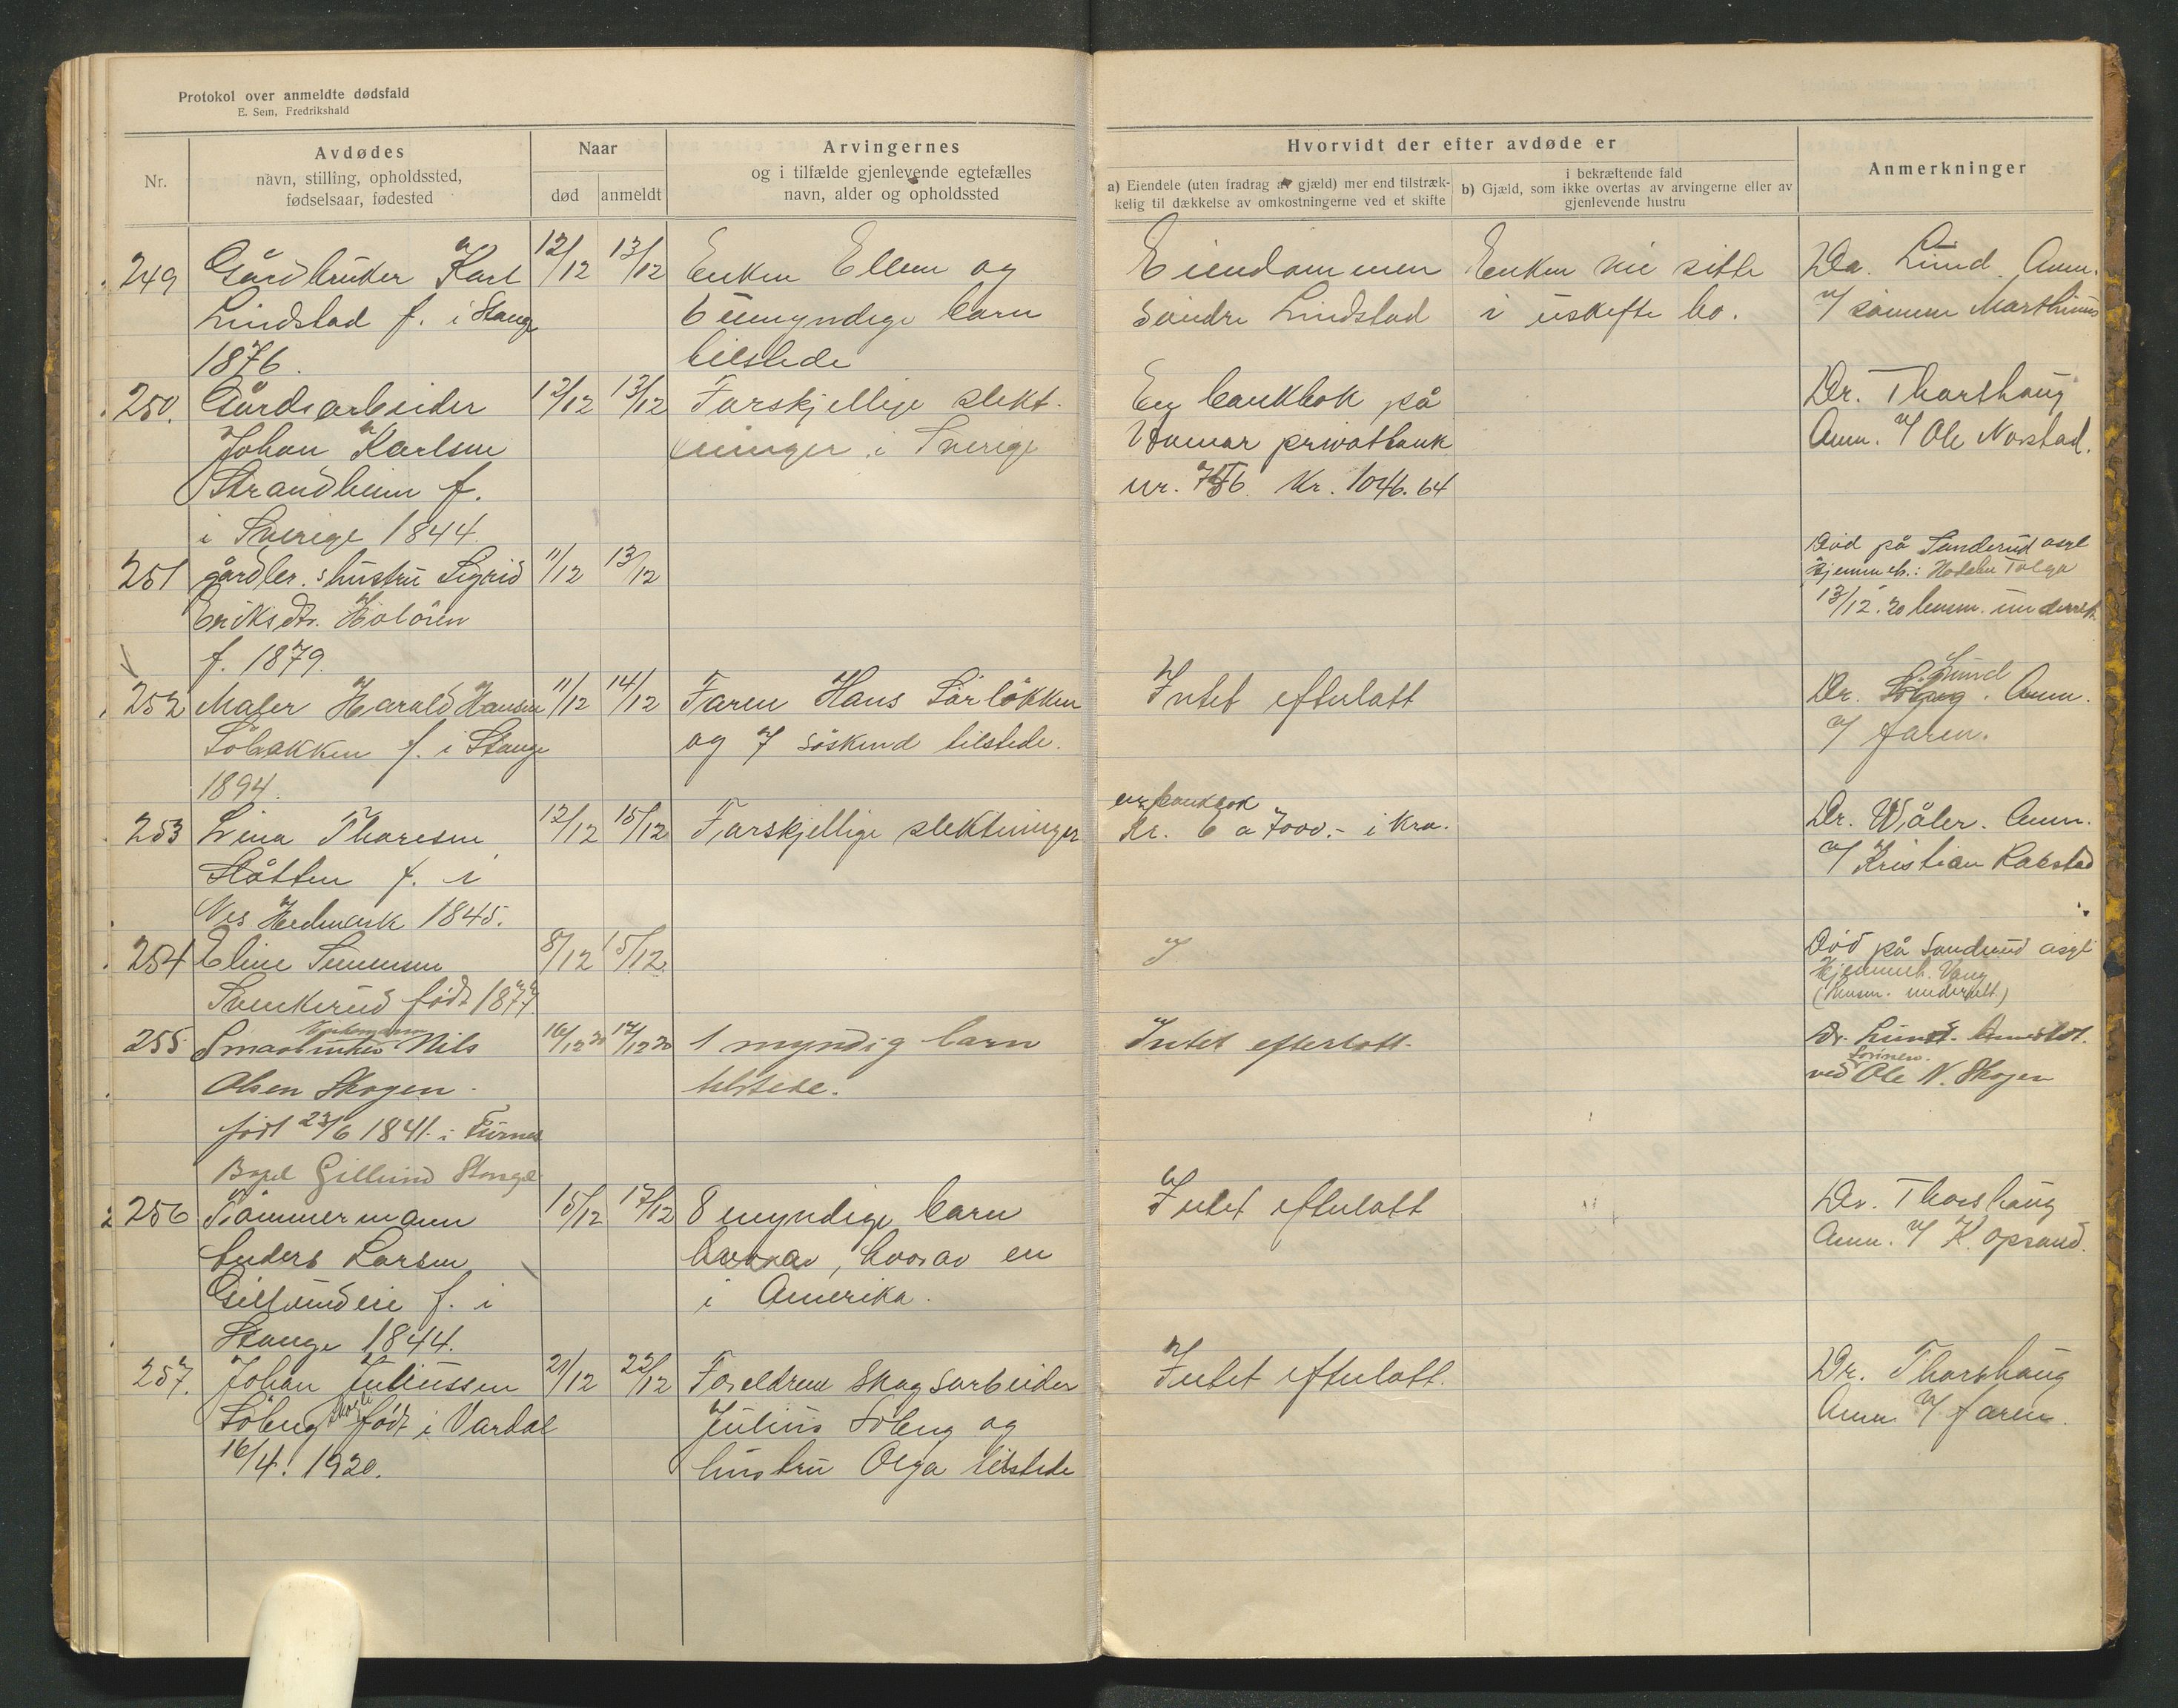 Protokol over anmeldte dødsfald
E. Sem, Fredrikshald
Nr.
Avdødes
navn, stilling, opholdssted,
fødselsaar, fødested
Naar
død
anmeldt
Arvingernes
og i tilfælde gjenlevende egtefælles
navn, alder og opholdssted
Hvorvidt der efter avdøde er
a) Eiendele (uten fradrag av gjæld) mer end tilstræk-
kelig til dækkelse av omkostningerne ved et skifte
i bekræftende fald
b) Gjæld, som ikke overtas av arvingerne eller av
gjenlevende hustru
Anmerkninger
249 Gårdbruker Karl 12/12 13/12 Enken Ellen og Eiendommen Enken vil sitte Dr. Lund. Anm.
Lindstad f. i Stange 6 umyndige barn Søndre Lindstad i uskifte bo. v/ sønnen Marthinus
1876. tilstede
250. Gårdsarbeider 12/12 13/12 Forskjellige slekt- En bankbok på Dr. Thorshaug
Johan Karlsen ninger i Sverige Hamar privatbank Anm. v/ Ole Norstad.
Strandheim f. nr. Kr. 1046.64
i Sverige 1844.
251 gårdbr.s hustru Sigrid 11/12 13/12 Død på Sanderud asyl
Eriksdtr. Holøien hjemmeh.: Hodalen Tolga
f. 1879. 13/12.20 lensm. underret.
252 Maler Harald Hansen 11/12 14/12 Faren Hans Sørløkken Intet efterlatt Dr. Lund. Anm.
Søbakken f. i Stange og 7 søskend tilstede. v/ faren.
1894.
253 Lina Thoresen 12/12 15/12 Forskjellige slektninger en bankbok Dr. Wåler. Anm.
Slåtten f. i Kr. 6 a 7000.- i Kra. v/ Kristian Rakstad
Nes Hedmark 1845.
254 Eline Simensen 8/12 15/12. Død på Sanderud asyl
Svenkerud født 1877. Hjemmeh. Vang
(Lensm. underrett)
255 Smaabruker Nils 16/12 20 17/12 20 1 myndig barn Intet efterlatt. Dr. Lund. Anmeldt.
Olsen Skogen. tilstede. ved Sønnen. Ole N. Skogen
født 23/6 1841. i Furnes
Bopel Gillund Stange
256 Tømmermann 15/12 17/12 8 myndige barn Intet efterlatt Dr. Thorshaug
Anders Larsen hvorav, hvorav en Anm. v/ K. Opsand.
Gillundeie f. i i Amerika.
Stange 1844.
257. Johan Juliussen 21/12 22/12 Foreldrene Skogsarbeider Intet efterlatt. Dr. Thorshaug
Søberg født i Vardal Julius Søberg og Anm. v/ faren.
16/4. 1920. hustru Olga tilstede